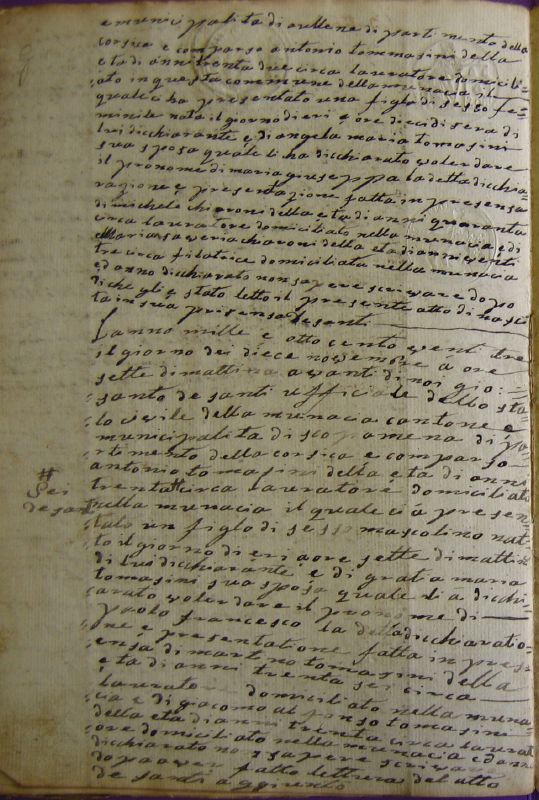 e municipalita di  di partimento della
corsica e comparso antonio tommasini della
eta di anni trenta due circa lavoratore domicili=
ato in questa commune della munacia il
quale ci ha presentato una figlo di sesso fe=
minile nata il giorno di eri a ore dieci di sera di
lui dicchiarante e di angela maria tomasini
sua sposa quale li ha dicchiarato volerdare
il pronome di maria giuseppa la detta dicchia=
razione e presentazione fatta in presensa
di michele chiaroni della eta di anni quaranta
circa lavoratore domiciliato nella munacia e di
maria saveria chiaroni della eta di anni venti
tre circa filatrice domiciliata nella munacia
ed anno dicchiarato non sapere scrivare dopo
di che gli e stato letto il presente atto di nasci
ta in sua presensa Desanti
Lanno mille e otto cento venti tre
il giorno dei diece novembre a ore
sette di mattina avanti di noi gio:
santo de santi ufficiale dello sta
to civile della munacia cantone e
municipalita di scopamena di pa
rtimento della corsica e comparso
antonio tomasini della eta di anni
trenta # circa lavoratore domiciliato
nella munacia il quale ci a presen
tato un figlo di sesso mascolino nat
to il giorno di eri a ore sette di mattina
di lui dicchiarante e di grata maria
tomasini sua sposa quale li a dicchi
arato volerdare il pronome di
paolo francesco la detta dicchiaratio=
ne e presentatione fatta in pres
ensa di martino tomasini della
eta di anni trenta sei circa
lavoratore domiciliato nella muna
cia e di giacomo alfonso tomasini
della eta di anni trenta circa lavorat
ore domiciliato nella munacia ed anno
dicchiarato no sapere scrivare
dopo aver fatto lettura del atto
de santi
#
Sei
desanti